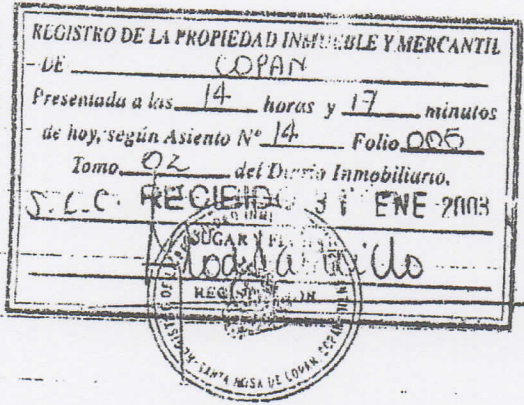 REGISTRO DE LA PROPIEDAD INMUEBLE Y MERCANTIL
DE COPAN
Presentada a las 14 horas y 17 minutos
de hoy, según Asiento Nº 14 Folio 005
Tomo 02 del Diario Inmobiliario.
S.L.C. RECIBIDO 31 ENE 2003
LUGAR Y
REGISTRADOR
SANTA ROSA DE COPAN, COPAN